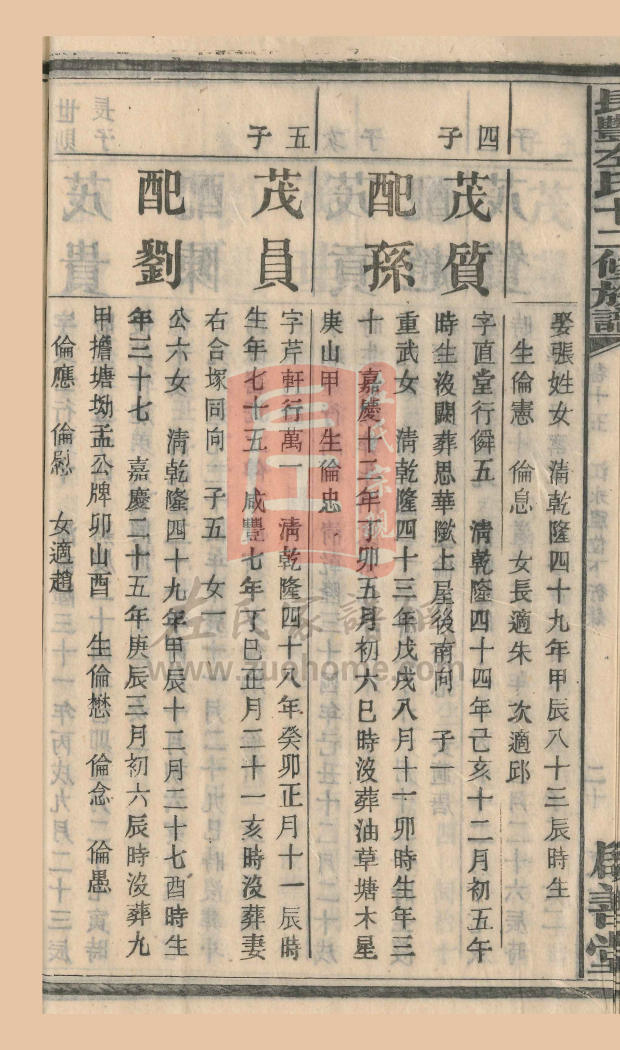 長豐左氏十二修族譜
娶張姓女　清乾隆四十九年甲辰八十三辰時生
生倫憲　倫息　女長適朱　次適邱
四子
茂質
字直堂行僢五　清乾隆四十四年己亥十二月初五午
時生沒闕葬思華㘰上屋後南向　子一
配孫
重武女　清乾隆四十三年戊戌八月十一卯時生年三
十　嘉慶十二年丁卯五月初六巳時沒葬油草塘木星
庚山甲　生倫忠
五子
茂員
字芹軒行萬一　清乾隆四十八年癸卯正月十一辰時
生年七十五　咸豐七年丁巳正月二十一亥時沒葬妻
右合塚同向　子五　女一
配劉
公六女　清乾隆四十九年甲辰十二月二十七酉時生
年三十七　嘉慶二十五年庚辰三月初六辰時沒葬九
甲擔塘坳孟公牌卯山酉　生倫懋　倫念　倫愚
倫應　倫慰　女適趙
左氏家譜網
www.zuohome.com